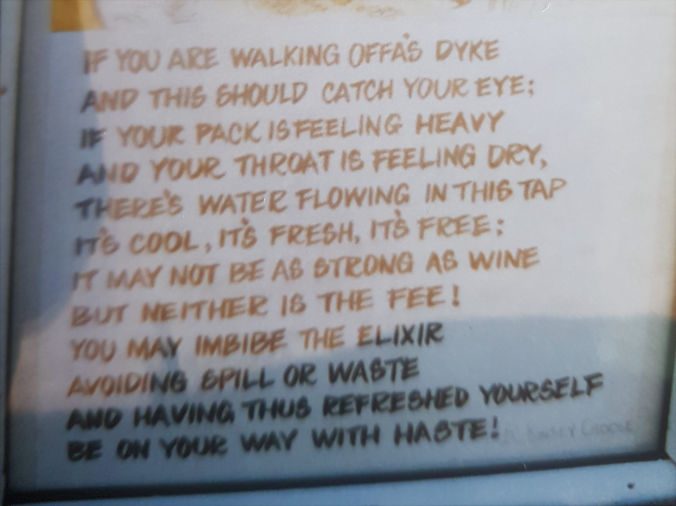 IF YOU ARE WALKING OFFA'S DYKE
AND THIS SHOULD CATCH YOUR EYE;
IF YOUR PACK IS FEELING HEAVY
AND YOUR THROAT IS FEELING DRY,
THERE'S WATER FLOWING IN THIS TAP
IT'S COOL, IT'S FRESH, IT'S FREE:
IT MAY NOT BE AS STRONG AS WINE
BUT NEITHER IS THE FEE!
YOU MAY IMBIBE THE ELIXIR
AVOIDING SPILL OR WASTE
AND HAVING THUS REFRESHED YOURSELF
BE ON YOUR WAY WITH HASTE!